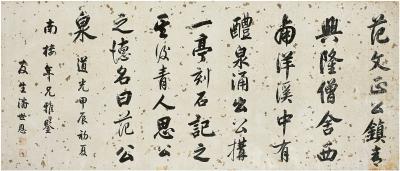 范文正公鎮青
興隆僧舍西
南洋溪中有
醴泉涌出公構
一亭刻石記之
其後青人思公
之德名曰范公
泉 道光甲辰初夏
南樵年兄雅鑒
友生潘世恩